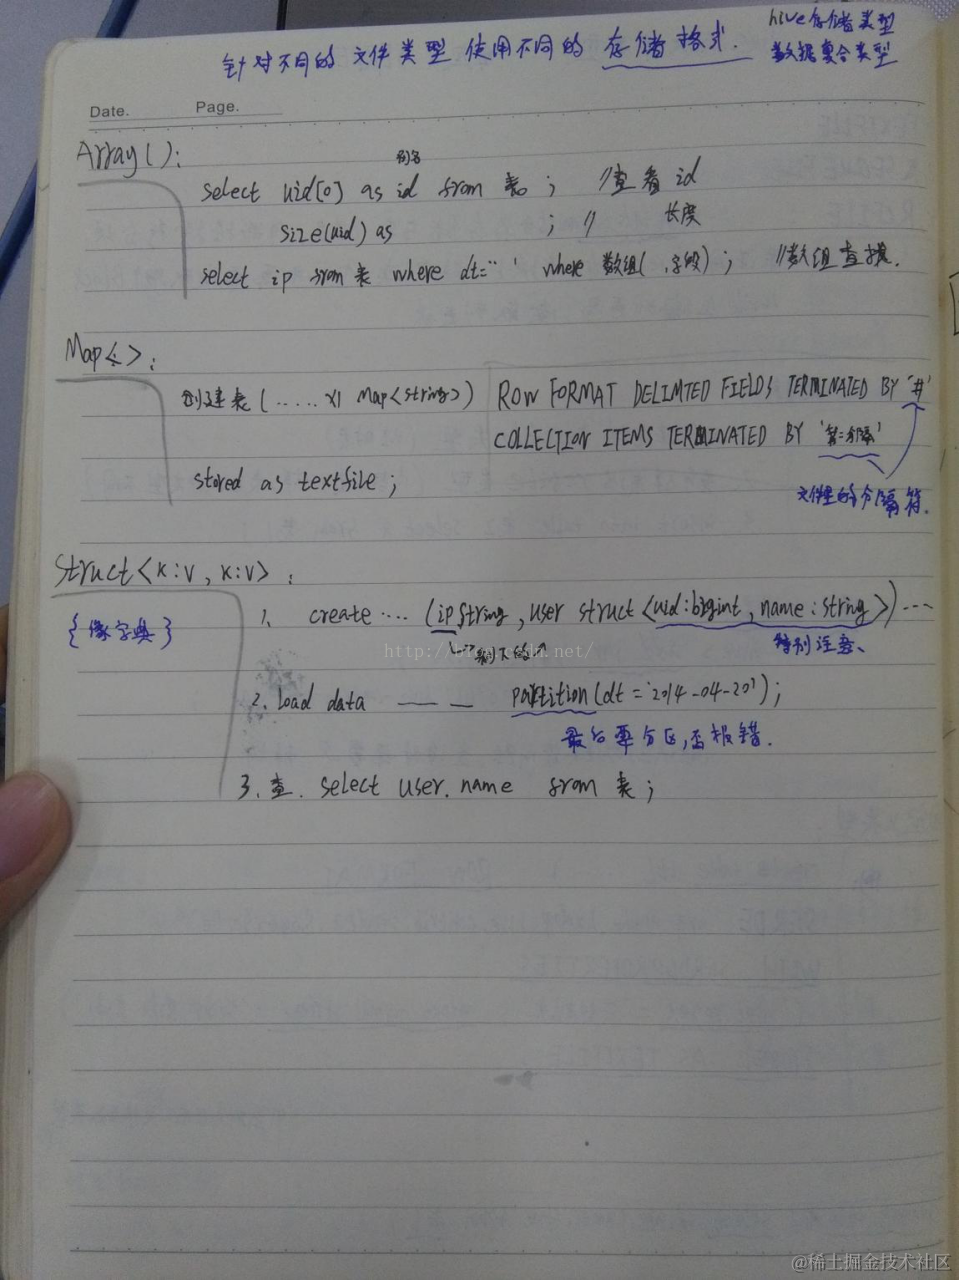 hive存储类型
针对不同的文件类型使用不同的存储格式. 数据复合类型
Date. Page.
Array():
别名
select uid[0] as id from 表。; //查看id
size(uid) as ; // 长度
select ip from 表 where dt='' ' where 数组( ,字段); //数组查找.
Map<:>:
创建表(...... x1 Map<string>) ROW FORMAT DELIMTED FIELDS TERMINATED BY '#'
COLLECTION ITEMS TERMINATED BY '第二分隔'
stored as textfile;
文件里的分隔符.
Struct<K:V, K:V>:
{像字典}
1. create···· (ip string, user struct<uid:bigint, name:string>)···
剩下的 特别注意、
http://blog.csdn.net/
2. load data —— — partition(dt='2014-04-20');
最后要分区,否报错.
3. 查. select user.name from 表;
@稀土掘金技术社区